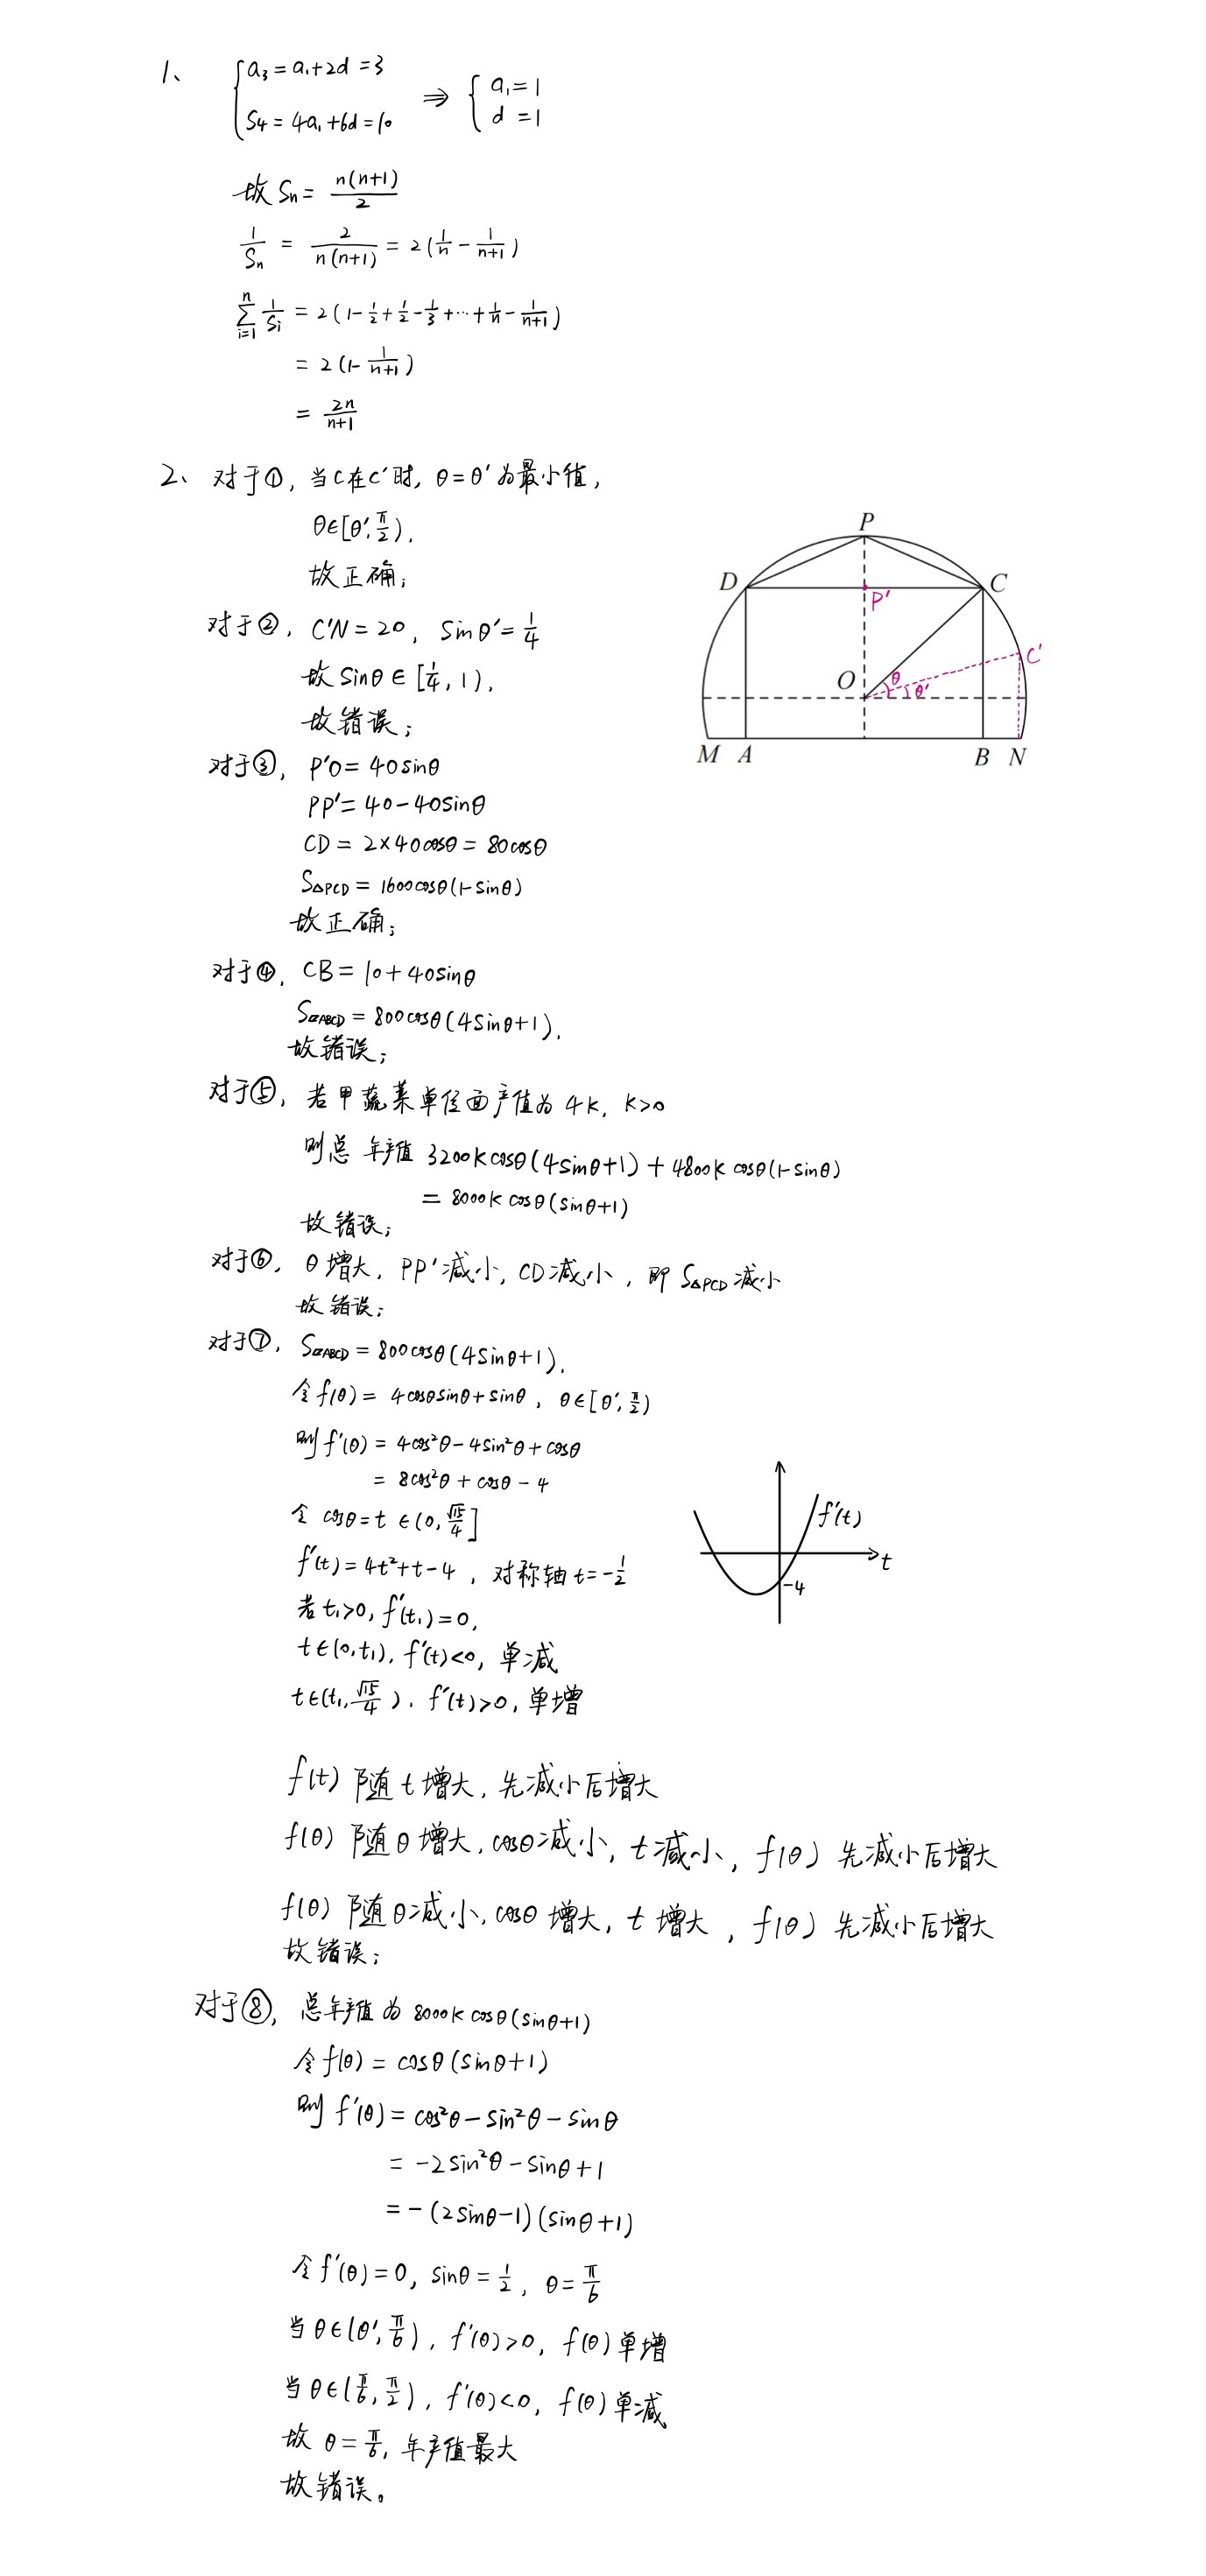 1、 { a₃=a₁+2d=3
S₄=4a₁+6d=10 ⇒ { a₁=1
d=1
故 Sn = n(n+1)/2
1/Sn = 2/(n(n+1)) = 2(1/n - 1/(n+1))
∑_{i=1}^{n} 1/Si = 2(1-1/2+1/2-1/3+⋯+1/n-1/(n+1))
= 2(1-1/(n+1))
= 2n/(n+1)
2、 对于①, 当C在C'时, θ=θ'为最小值,
θ∈[θ', π/2),
故正确;
对于②, C'N=20, sinθ'=1/4
故 sinθ∈[1/4, 1),
故错误;
对于③, P'O=40sinθ
PP'=40-40sinθ
CD=2×40cosθ=80cosθ
S△PCD=1600cosθ(1-sinθ)
故正确;
对于④, CB=10+40sinθ
S▱ABCD=800cosθ(4sinθ+1),
故错误;
对于⑤, 若甲蔬菜单位面产值为4k, k>0
则总年产值 3200kcosθ(4sinθ+1)+4800kcosθ(1-sinθ)
= 8000kcosθ(sinθ+1)
故错误;
对于⑥, θ增大, PP'减小, CD减小, 即 S△PCD减小
故错误;
对于⑦, S▱ABCD=800cosθ(4sinθ+1),
令f(θ)= 4cosθsinθ+sinθ, θ∈[θ', π/2)
则f'(θ)= 4cos²θ-4sin²θ+cosθ
= 8cos²θ+cosθ-4
令 cosθ=t ∈(0, √15/4]
f'(t)=4t²+t-4, 对称轴t=-1/2
若t₁>0, f'(t₁)=0,
t∈(0,t₁), f'(t)<0, 单减
t∈(t₁, √15/4), f'(t)>0, 单增
f(t) 随t增大, 先减小后增大
f(θ) 随θ增大, cosθ减小, t减小, f(θ) 先减小后增大
f(θ) 随θ减小, cosθ增大, t增大, f(θ) 先减小后增大
故错误;
对于⑧, 总年产值为 8000kcosθ(sinθ+1)
令f(θ)= cosθ(sinθ+1)
则 f'(θ)= cos²θ-sin²θ-sinθ
= -2sin²θ-sinθ+1
= -(2sinθ-1)(sinθ+1)
令f'(θ)=0, sinθ=1/2, θ=π/6
当θ∈(θ', π/6), f'(θ)>0, f(θ)单增
当θ∈(π/6, π/2), f'(θ)<0, f(θ)单减
故 θ=π/6, 年产值最大
故错误。
P
D
C
P'
C'
O
θ
θ'
M A
B N
f'(t)
t
-4